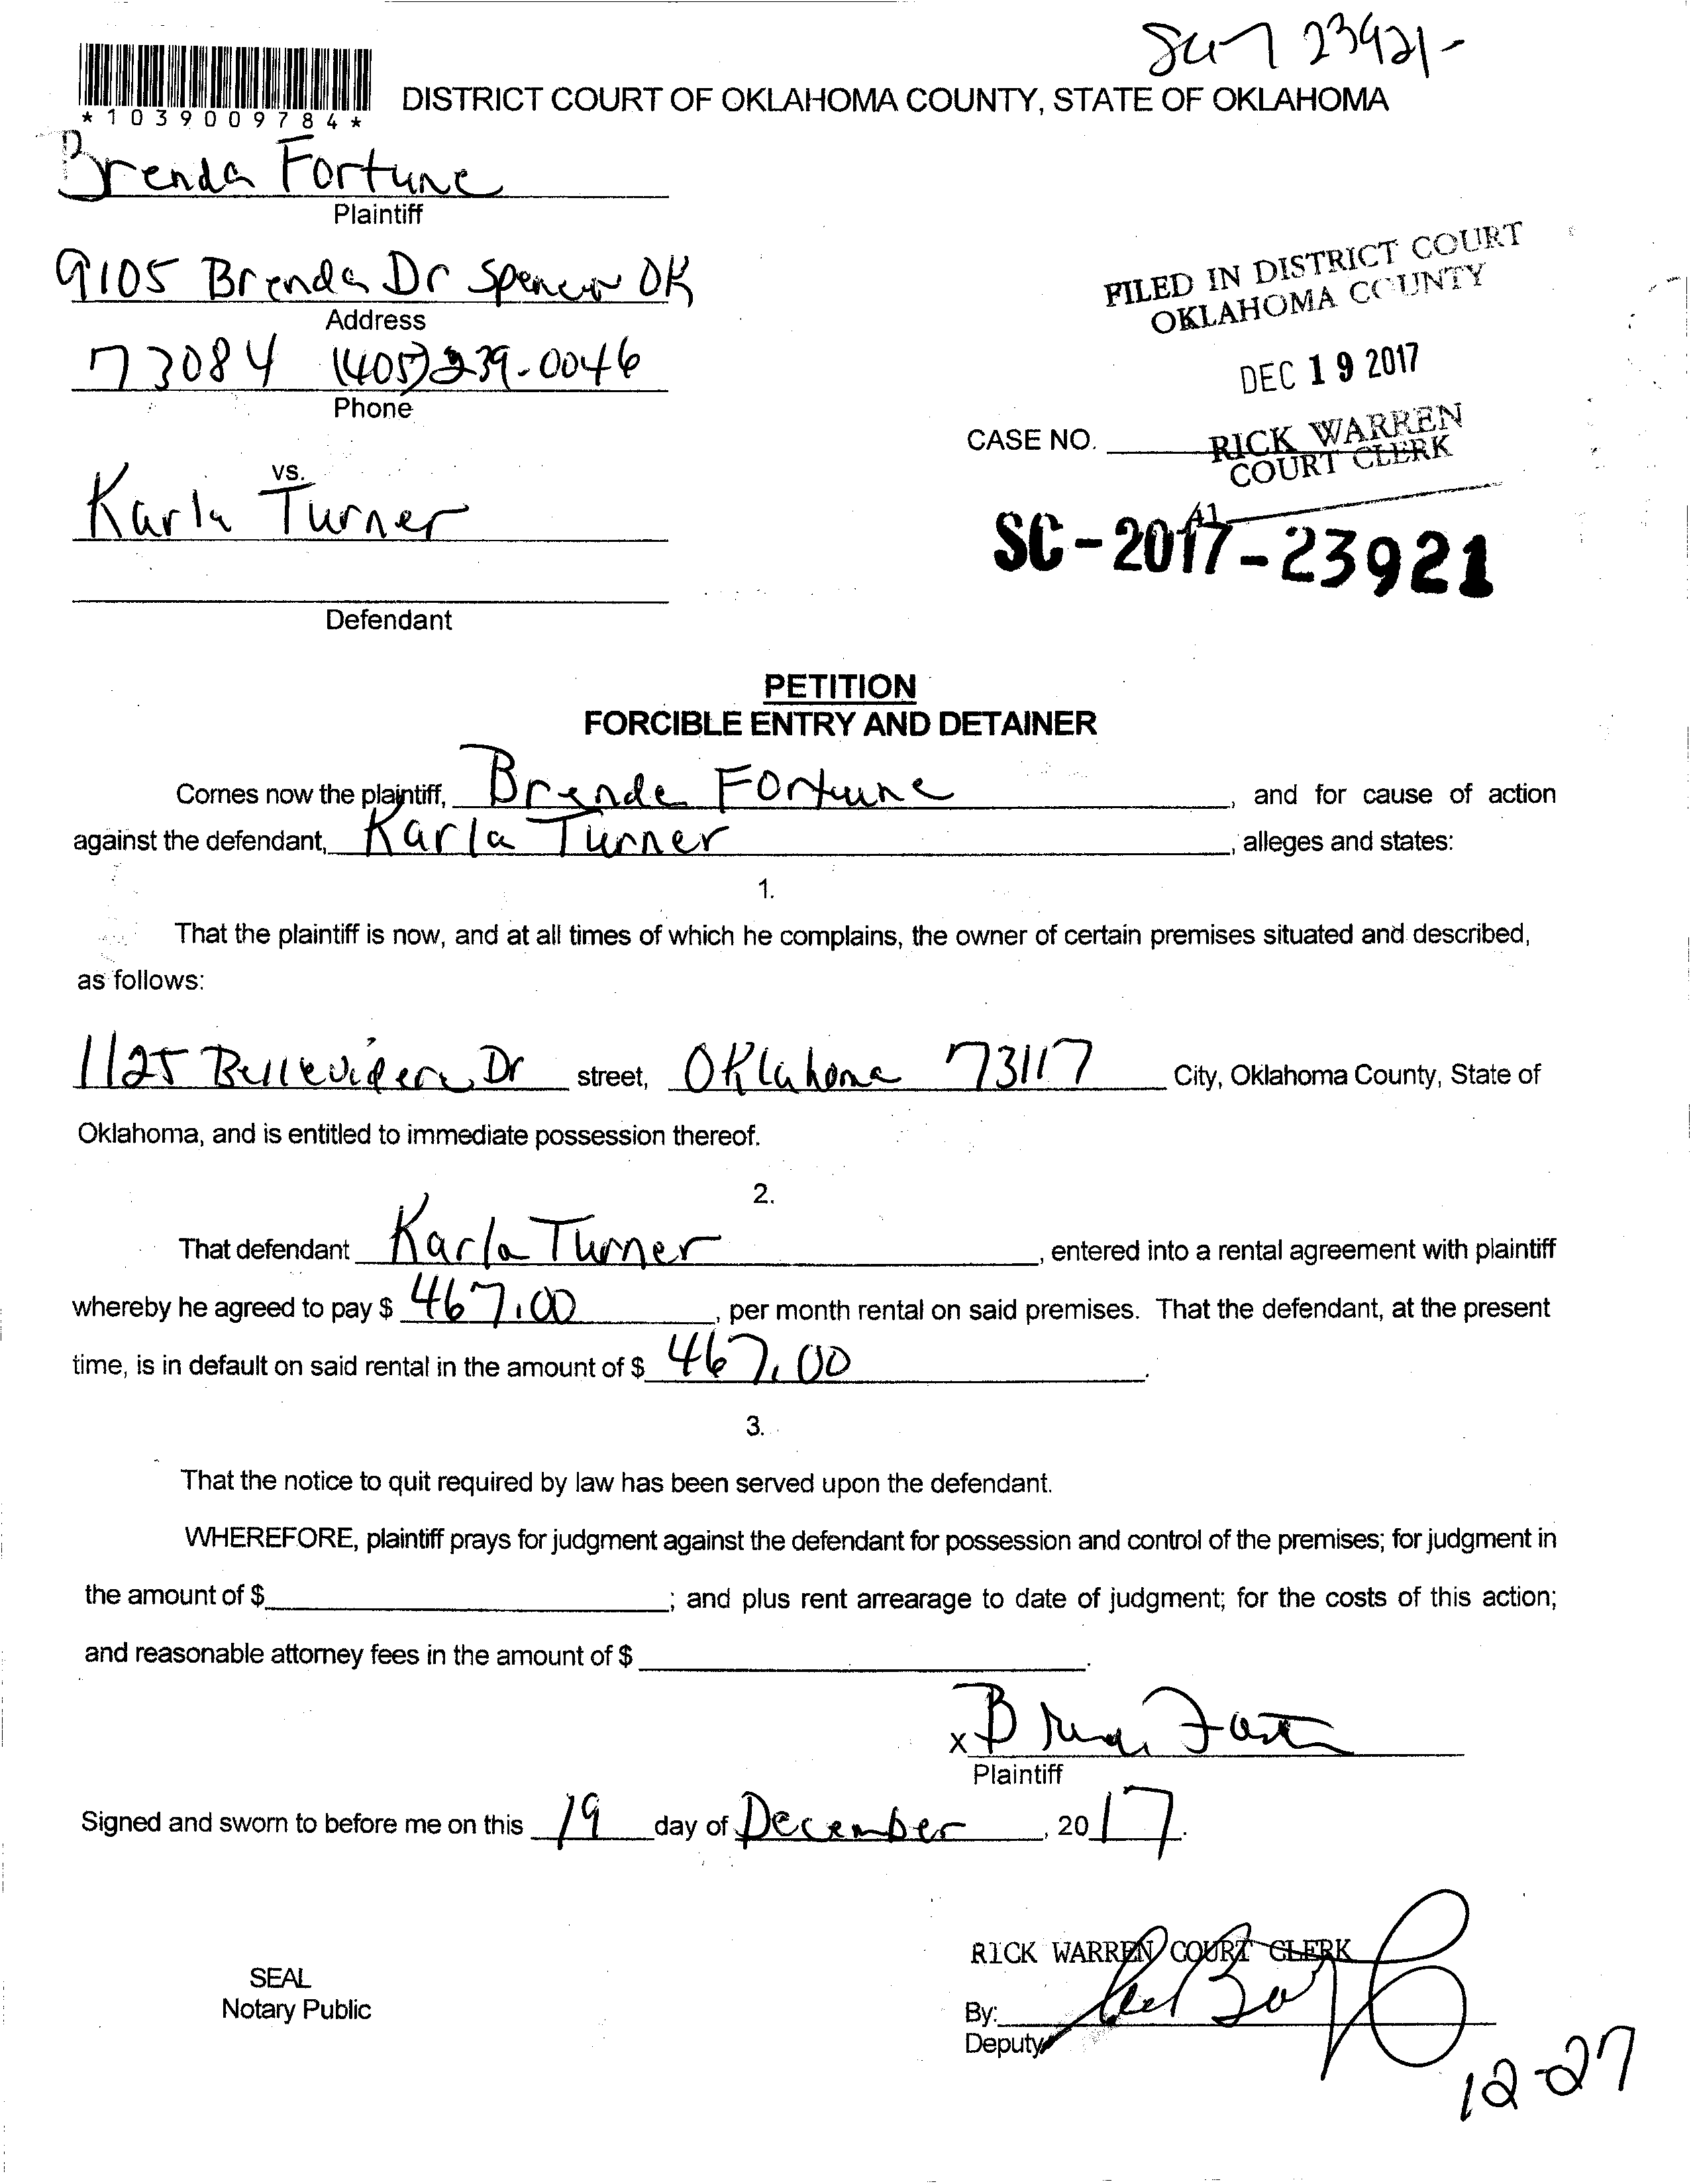 23921-
DISTRICT COURT OF OKLAHOMA COUNTY, STATE OF OKLAHOMA
*1039009784*
Brenda Fortune
Plaintiff
9105 Brenda Dr Spencer OK
Address
73084 (405) 239-0046
Phone
vs.
Karla Turner
Defendant
FILED IN DISTRICT COURT
OKLAHOMA COUNTY
DEC 19 2017
RICK WARREN
COURT CLERK
CASE NO.
41
SC-2017-23921
PETITION
FORCIBLE ENTRY AND DETAINER
Comes now the plaintiff, Brenda Fortune, and for cause of action
against the defendant, Karla Turner, alleges and states:
1.
That the plaintiff is now, and at all times of which he complains, the owner of certain premises situated and described,
as follows:
1125 Dr street, Oklahoma 73117 City, Oklahoma County, State of
Oklahoma, and is entitled to immediate possession thereof.
2.
That defendant Karla Turner, entered into a rental agreement with plaintiff
whereby he agreed to pay $ 467.00, per month rental on said premises. That the defendant, at the present
time, is in default on said rental in the amount of $ 467.00.
3.
That the notice to quit required by law has been served upon the defendant.
WHEREFORE, plaintiff prays for judgment against the defendant for possession and control of the premises; for judgment in
the amount of $ ; and plus rent arrearage to date of judgment; for the costs of this action;
and reasonable attorney fees in the amount of $ .
x
Plaintiff
Signed and sworn to before me on this 19 day of December, 2017.
RICK WARREN COURT CLERK
SEAL
Notary Public
By:
Deputy
12-27